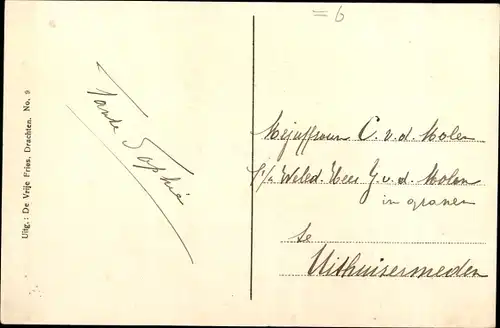 = 6
Uitg.: De Vrije Fries, Drachten. No. 9
Tante Sophie
Mejuffrouw C. v. d. Molen
p/a Weled. Heer J. v. d. Molen
in granen
te
Uithuizermeden